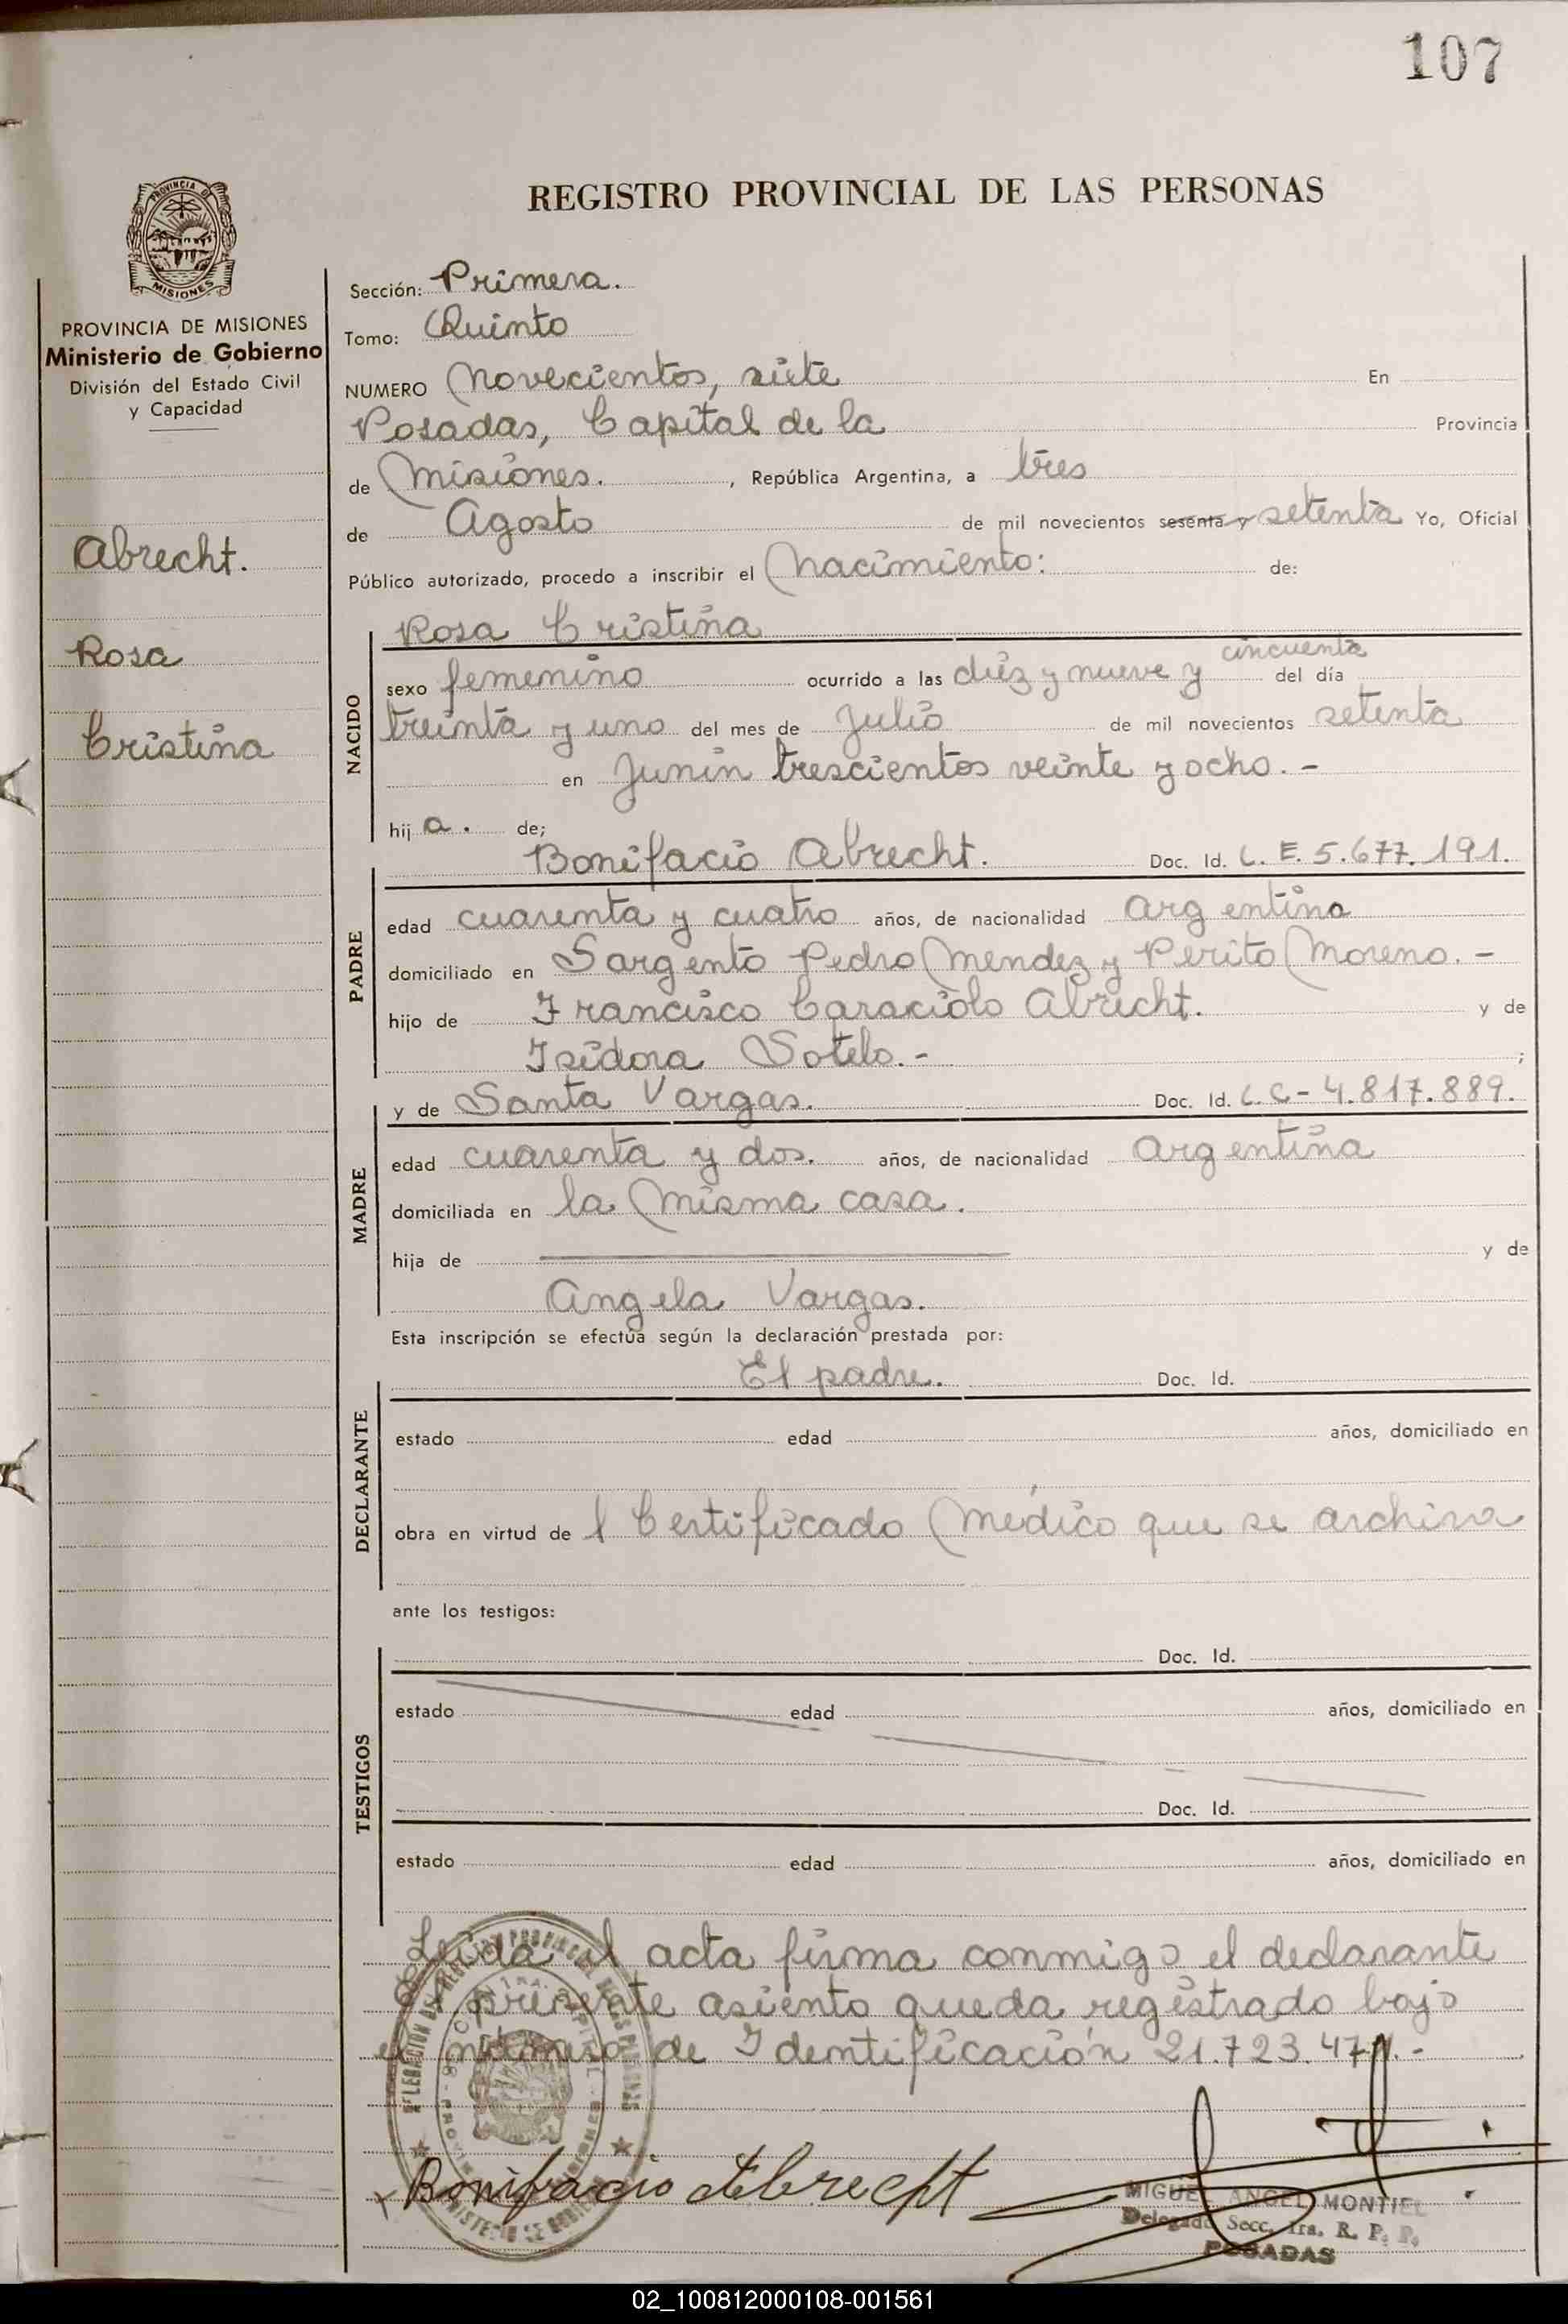 107
REGISTRO PROVINCIAL DE LAS PERSONAS
PROVINCIA DE
MISIONES
PROVINCIA DE MISIONES
Ministerio de Gobierno
División del Estado Civil
y Capacidad
Abrecht.
Rosa
Cristina
Sección: Primera.
Tomo: Quinto
NUMERO Novecientos, siete En
Posadas, Capital de la Provincia
de Misiones. , República Argentina, a tres
de Agosto de mil novecientos sesenta y setenta Yo, Oficial
Público autorizado, procedo a inscribir el Nacimiento: de:
NACIDO
Rosa Cristina
cincuenta
sexo femenino ocurrido a las diez y nueve y del día
treinta y uno del mes de Julio de mil novecientos setenta
en Junin trescientos veinte y ocho. -
hij a. de;
PADRE
Bonifacio Abrecht. Doc. Id. L. E. 5.677.191.
edad cuarenta y cuatro años, de nacionalidad Argentina
domiciliado en Sargento Pedro Mendez y Perito Moreno. -
hijo de Francisco Caraciolo Abrecht. y de
Isidora Sotelo. - ;
MADRE
y de Santa Vargas. Doc. Id. L. C - 4.817.889.
edad cuarenta y dos. años, de nacionalidad Argentina
domiciliada en la Misma casa.
hija de y de
Angela Vargas.
Esta inscripción se efectúa según la declaración prestada por:
DECLARANTE
El padre. Doc. Id.
estado edad años, domiciliado en
obra en virtud de l Certificado Médico que se archiva
ante los testigos:
TESTIGOS
Doc. Id.
estado edad años, domiciliado en
Doc. Id.
estado edad años, domiciliado en
Leida el acta firma conmigo el declarante
presente asiento queda registrado bajo
el número de Identificación 21.723.47
Bonifacio Abrecht
MIGUEL ANGEL MONTIEL
Delegado Secc. 1ra. R. P. P.
POSADAS
02_100812000108-001561